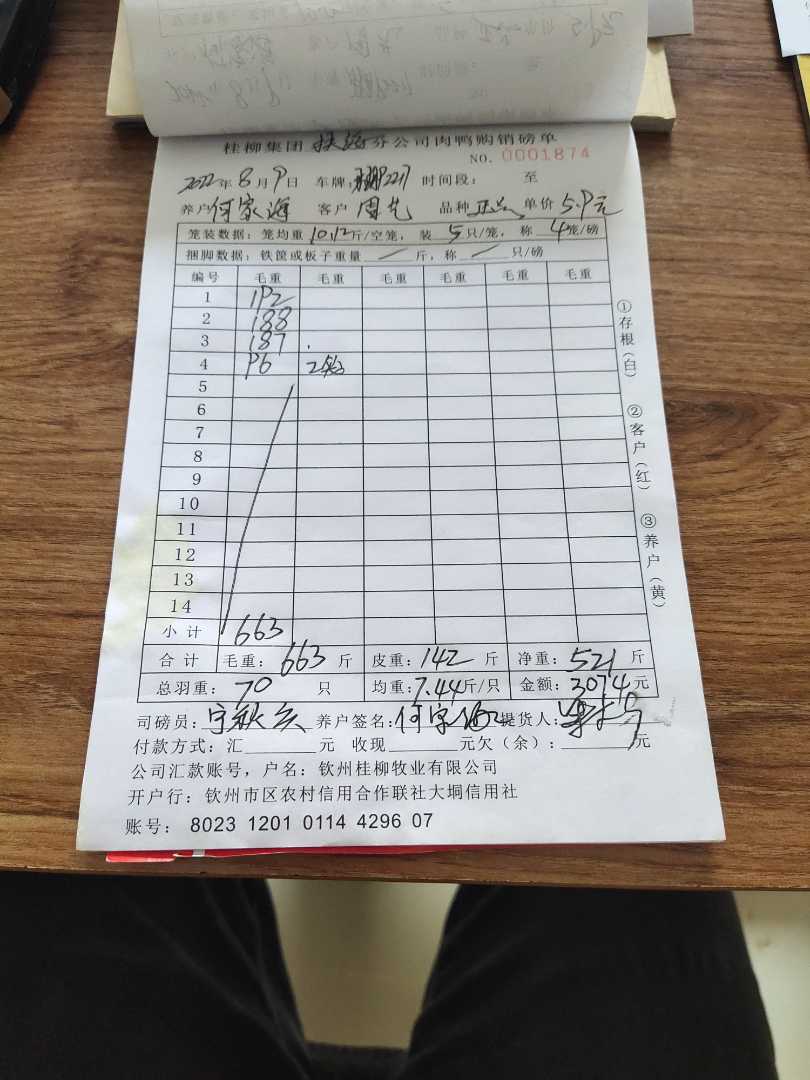 桂柳集团 分公司肉鸭购销磅单
NO. 0001874
2022年8月9日 车牌: 2217 时间段: 至
养户何家海 客户 周艺 品种 单价5.9元
笼装数据: 笼均重10.12斤/空笼, 装5只/笼, 称4笼/磅
捆脚数据: 铁筐或板子重量 / 斤, 称 / 只/磅
编号 毛重 毛重 毛重 毛重 毛重 毛重
1 192
2 188
3 187
4 96 2
5
6
7
8
9
10
11
12
13
14
小计 663
合计 毛重: 663 斤 皮重: 142 斤 净重: 521 斤
总羽重: 70 只 均重: 7.44斤/只 金额: 3074元
司磅员: 养户签名: 何家海 提货人:
付款方式: 汇 元 收现 元欠(余): 元
公司汇款账号, 户名: 钦州桂柳牧业有限公司
开户行: 钦州市区农村信用合作联社大垌信用社
账号: 8023 1201 0114 4296 07
①存根(白)
②客户(红)
③养户(黄)